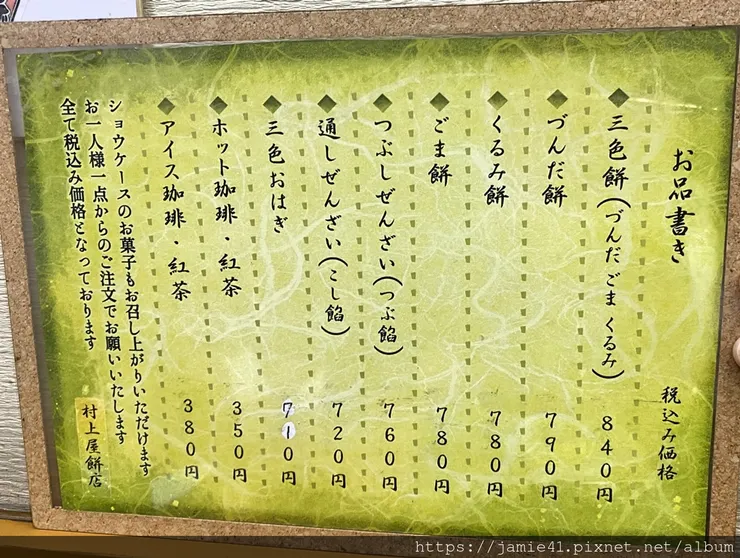 お品書き
税込み価格
◆三色餅(づんだ ごま くるみ) 840円
◆づんだ餅 790円
◆くるみ餅 780円
◆ごま餅 780円
◆つぶしぜんざい(つぶ餡) 760円
◆通しぜんざい(こし餡) 720円
◆三色おはぎ 710円
◆ホット珈琲・紅茶 350円
◆アイス珈琲・紅茶 380円
ショウケースのお菓子もお召し上がりいただけます
お一人様一点からのご注文でお願いいたします
全て税込み価格となっております
村上屋餅店
https://jamie41.pixnet.net/album